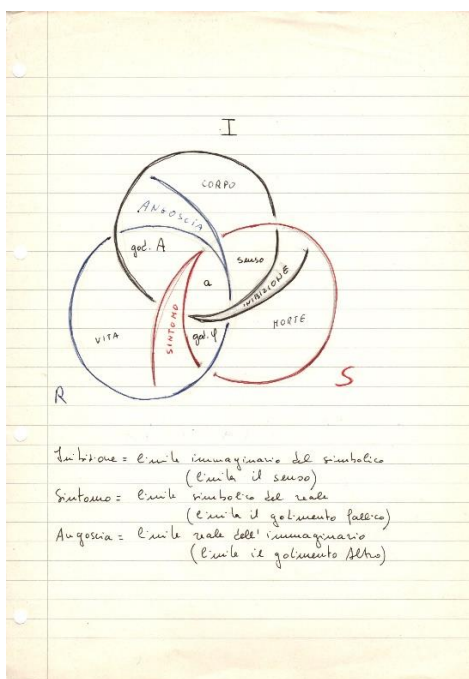 I
CORPO
ANGOSCIA
god. A
senso
a
INIBIZIONE
SINTOMO
god. φ
MORTE
VITA
R
S
Inibizione = limite immaginario del simbolico
(limita il senso)
Sintomo = limite simbolico del reale
(limita il godimento fallico)
Angoscia = limite reale dell'immaginario
(limite il godimento Altro)